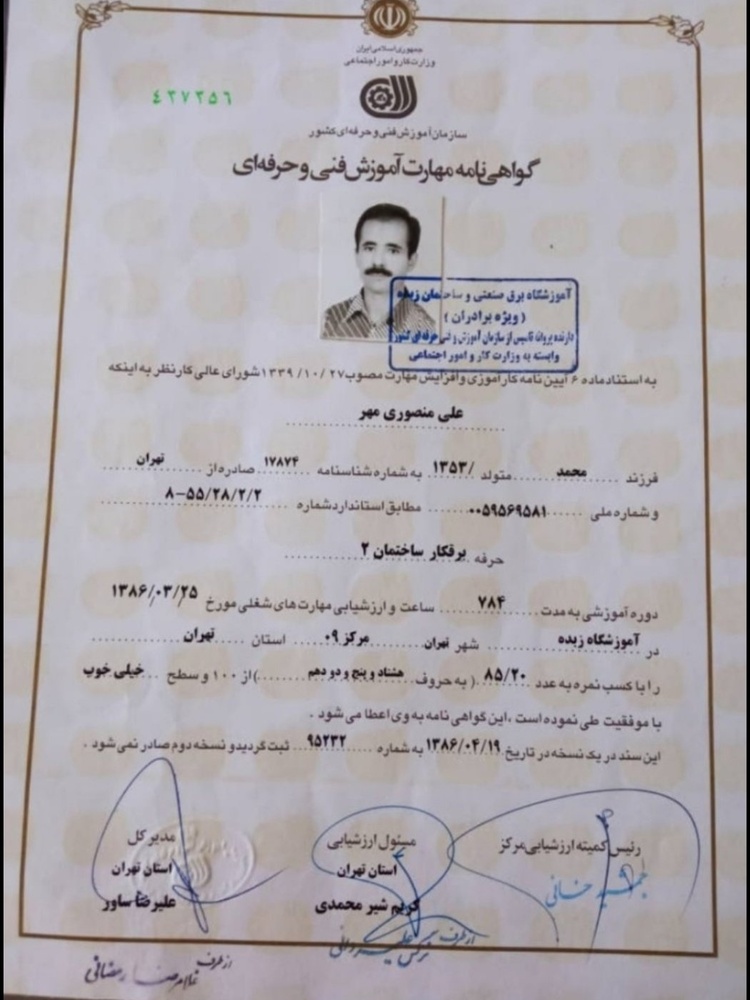 جمهوری اسلامی ایران
وزارت کار و امور اجتماعی
٤٣٧٣٥٦
سازمان آموزش فنی و حرفه‌ای کشور
گواهی‌نامه مهارت آموزش فنی و حرفه‌ای
آموزشگاه برق صنعتی و ساختمان زبده
( ویژه برادران )
دارنده پروانه تاسیس از سازمان آموزش و فنی حرفه ای کشور
وابسته به وزارت کار و امور اجتماعی
به استناد ماده ۶ آیین نامه کارآموزی و افزایش مهارت مصوب ۲۷ /۱۰ /۱۳۳۹ شورای عالی کار نظر به اینکه
علی منصوری مهر
فرزند محمد متولد /۱۳۵۳ به شماره شناسنامه ۱۷۸۷۴ صادره از تهران
و شماره ملی ۰۰۵۹۵۶۹۵۸۱ مطابق استاندارد شماره ۸-۵۵/۲۸/۲/۲
حرفه برقکار ساختمان ۲
دوره آموزشی به مدت ۷۸۴ ساعت و ارزشیابی مهارت های شغلی مورخ ۱۳۸۶/۰۳/۲۵
در آموزشگاه زبده شهر تهران مرکز ۰۹ استان تهران
را با کسب نمره به عدد ۸۵/۲۰ ( به حروف هشتاد و پنج و دو دهم ) از ۱۰۰ و سطح خیلی خوب
با موفقیت طی نموده است ، این گواهی نامه به وی اعطا می شود .
این سند در یک نسخه در تاریخ ۱۳۸۶/۰۴/۱۹ به شماره ۹۵۲۳۲ ثبت گردید و نسخه دوم صادر نمی شود .
رئیس کمیته ارزشیابی مرکز
مسئول ارزشیابی
استان تهران
کریم شیر محمدی
مدیر کل
استان تهران
علیرضا ساور
از طرف
از طرف
غلامرضا رمضانی